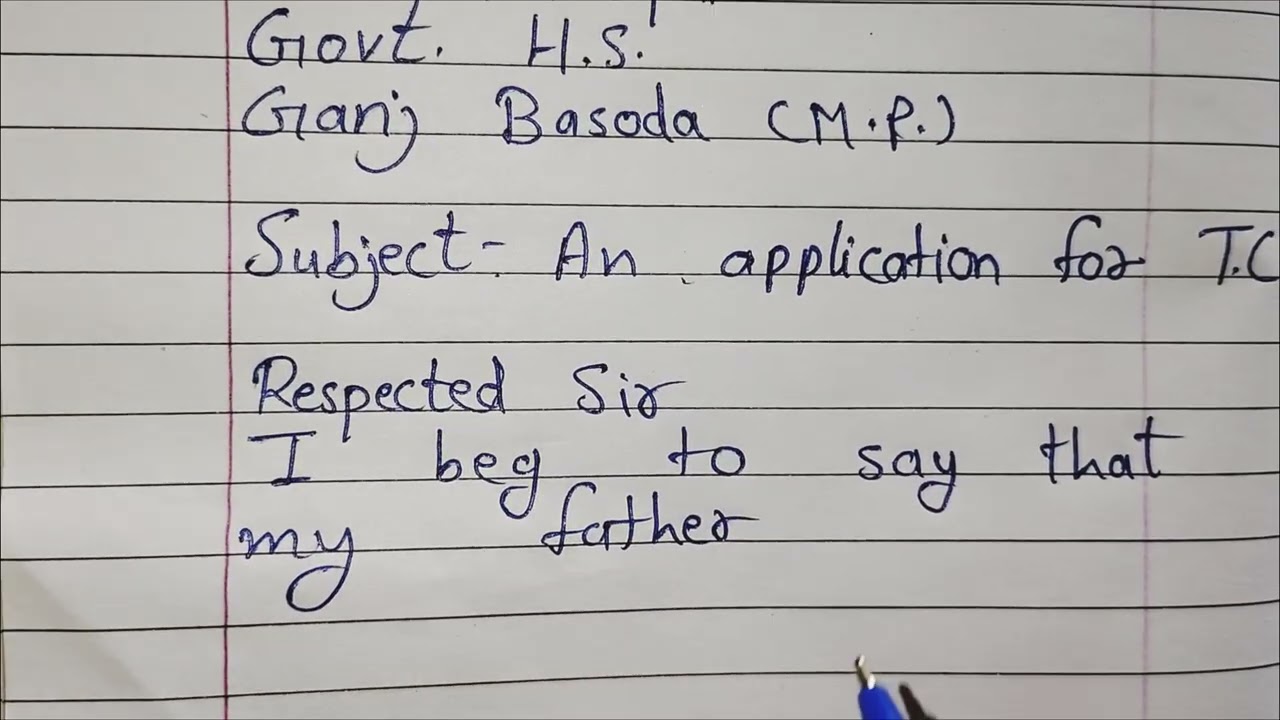 Govt. H.S.
Ganj Basoda (M.P.)
Subject- An application for T.C
Respected Sir
I beg to say that
my father